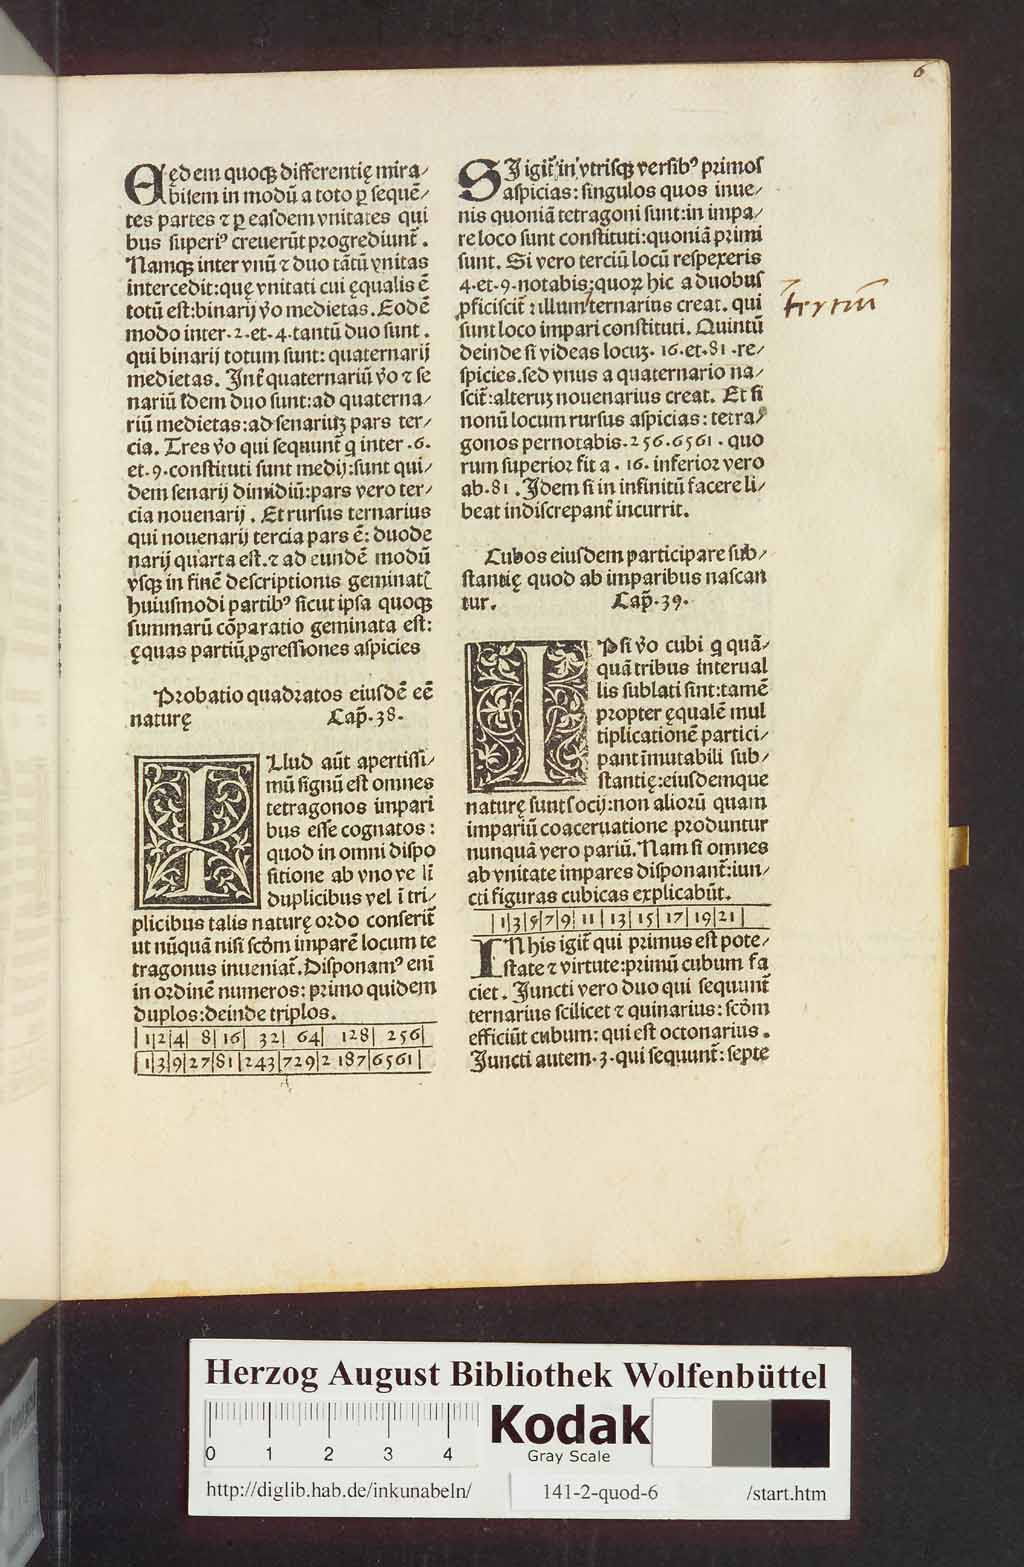 6
Aędem quoqꝫ differentię mira⸗
bilem in modū a toto ꝑ sequē⸗
tes partes ⁊ ꝑ easdem vnitates qui
bus superiꝰ creuerūt progrediunt̄.
Namqꝫ inter vnū ⁊ duo tātū vnitas
intercedit:quę vnitati cui ęqualis ē
totū est:binarij v̄o medietas. Eodē
modo inter.2.et.4.tantū duo sunt.
qui binarij totum sunt: quaternarij
medietas. Int̄ quaternariū v̄o ⁊ se
nariū idem duo sunt:ad quaterna⸗
riū medietas:ad senariuꝫ pars ter⸗
cia. Tres v̄o qui sequunt̄ q̄ inter.6.
et.9.constituti sunt medij:sunt qui⸗
dem senarij dimidiū:pars vero ter⸗
cia nouenarij. Et rursus ternarius
qui nouenarij tercia pars ē: duode
narij quarta est.⁊ ad eundē modū
vsqꝫ in finē descriptionis geminat̄
huiusmodi partibꝰ sicut ipsa quoqꝫ
summarū cōparatio geminata est:
ęquas partiū ꝓgressiones aspicies
Probatio quadratos eiusdē eē
naturę Cap̄.38.
Illud aūt apertissi⸗
mū signū est omnes
tetragonos impari
bus esse cognatos:
quod in omni dispo
sitione ab vno ve li
duplicibus vel ī tri⸗
plicibus talis naturę ordo conserit̄
ut nūquā nisi scd̄m imparē locum te
tragonus inueniat̄. Disponamꝰ eni
in ordinē numeros: primo quidem
duplos:deinde triplos.
|1|2|4| 8|16| 32| 64| 128| 256|
|1|3|9|27|81|243|729|2187|6561|
SI igit̄ in vtrisqꝫ versibꝰ primos
aspicias: singulos quos inue⸗
nis quoniā tetragoni sunt:in impa⸗
re loco sunt constituti:quoniā primi
sunt. Si vero terciū locū respexeris
4.et.9.notabis:quoꝝ hic a duobus
ꝓficiscit̄ : illum ternarius creat. qui
sunt loco impari constituti. Quintū
deinde si videas locuꝫ.16.et.81.re⸗
spicies.sed vnus a quaternario na⸗
scit̄:alteruꝫ nouenarius creat. Et si
nonū locum rursus aspicias: tetra⸗
gonos pernotabis.256.6561. quo
rum superior fit a.16. inferior vero
ab.81. Idem si in infinitū facere li⸗
beat indiscrepant̄ incurrit.
tertiū
Cubos eiusdem participare sub⸗
stantię quod ab imparibus nascan
tur. Cap̄.39.
IPsi v̄o cubi q̄ quā⸗
quā tribus interual
lis sublati sint:tamē
propter ęqualē mul
tiplicationē partici⸗
pant īmutabili sub⸗
stantię:eiusdemque
naturę sunt socij:non aliorū quam
impariū coaceruatione produntur
nunquā vero pariū. Nam si omnes
ab vnitate impares disponant̄:iun⸗
cti figuras cubicas explicabūt.
|1|3|5|7|9| 11 | 13| 15| 17| 19|21|
IN his igit̄ qui primus est pote⸗
state ⁊ virtute:primū cubum fa
ciet. Iuncti vero duo qui sequunt̄
ternarius scilicet ⁊ quinarius: scd̄m
efficiūt cubum: qui est octonarius.
Iuncti autem.3.qui sequunt̄: septe
Herzog August Bibliothek Wolfenbüttel
0 1 2 3 4
Kodak
Gray Scale
http://diglib.hab.de/inkunabeln/ 141-2-quod-6 /start.htm